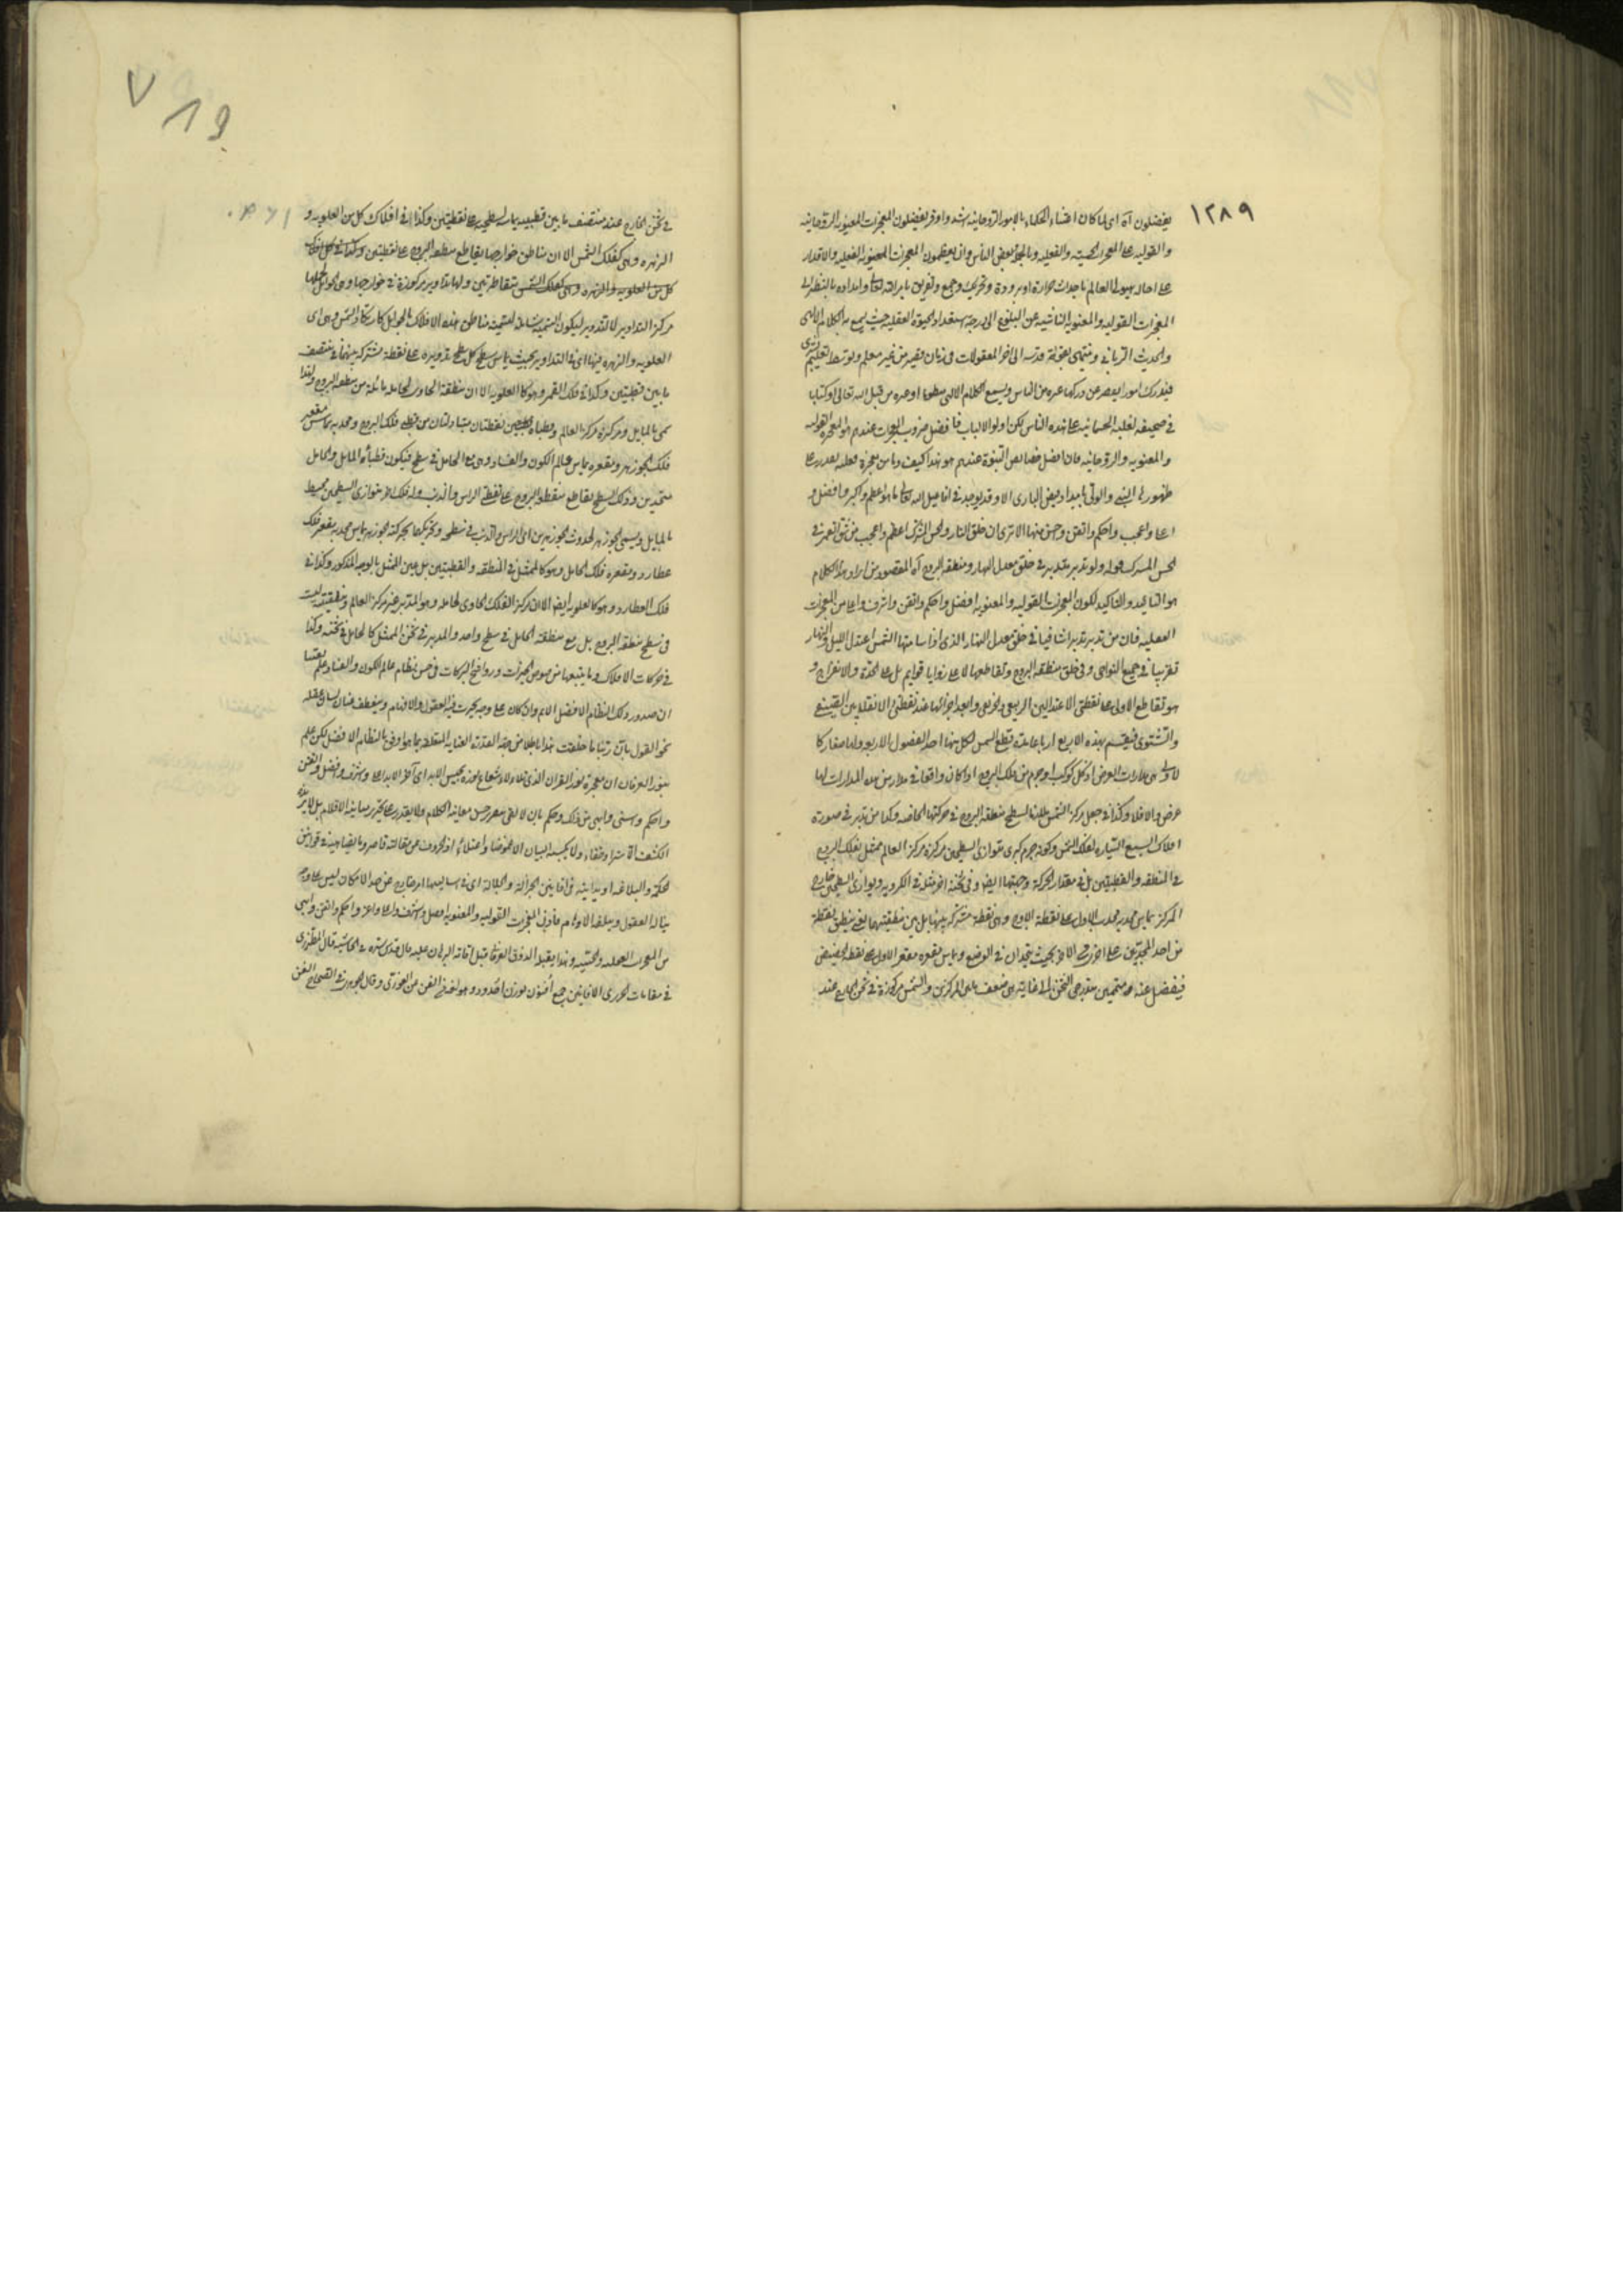 ١٢٨٩
يفضلون آه اى لما كان اعتناء الحكماء بالامور الروحانيه اشد واوفر يفضلون المعجزات المعنويه الروحانيه
والقوليه على المعجزات الحسيه والفعليه
على احاله هيولى العالم باحداث حرارة او برودة وتحريك وجمع وتفريق بامر الله تعالى وامداده بالنظر الى
المعجزات القوليه والمعنويه الناشيه عن البلوغ الى درجة استعداد الحيوة العقليه حيث يسمع به الكلام الالهى
والحديث الربانى وينتهى بقوة قدسه الى اخر المعقولات فى زمان قصير من غير معلم وتوسط تعليم بشرى
فيدرك امورا يعصر عن دركها غيره من الناس ويسمع الكلام الالهى من قبل الله تعالى او كتابا
فى صحيفه لغلبه الجسمانيه على هذه الناس لكن اولو الالباب فافضل ضروب المعجزات عندهم هو المعجزه القوليه
والمعنويه والروحانيه فان افضل خصائص النبوة عندهم هو هذا كيف وما من معجزة فعليه
الا وقد يوجد فى افاعيل الله تعالى ما هو اعظم واكبر وافضل و
اعلى واعجب واحكم واتقن واحسن منها الا ترى ان خلق النار ولحس المشترك اعظم واعجب من شق القمر فى
الحس المشترك قوله ولو تدبر متدبر فى خلق معدل النهار ومنطقه البروج آه المقصود من ايراد هذا الكلام
هو التأييد والتاكيد لكون المعجزات القوليه والمعنويه افضل واحكم واتقن واشرف واعلى من المعجزات
الفعليه فان من تدبر تدبرا شافيا فى خلق معدل النهار الذى اذا سامتها الشمس اعتدل الليل والنهار
تقريبا فى جميع النواحى وفى خلق منطقه البروج وتقاطعهما لا على زوايا قوايم بل على الحدة والانفراج و
هو تقاطع الاولى على نقطتى الاعتدالين الربيعى والخريفى وابعد اجزائها عند نقطتى الانقلابين الصيفى
والشتوى فينقسم بهذه الاربع ارباعا مدة قطع الشمس لكل منها احد الفصول الاربع ولها صغار كما
للاولى هى مدارات العرض اذ كل كوكب او جرم من فلك البروج اذا كان واقعا فى مدار من هذه المدارات لها
عرض والا فلا وكذا فى جعل مركز الشمس ملازما لسطح منطقه البروج فى حركتها الخاصه وكذا من تدبر فى صورة
افلاك السبع السياره لفلك الشمس وكونه جرم كرى متوازى السطحين مركزه مركز العالم ممثل بفلك البروج
فى المنطقه والقطبتين بل فى مقدار الحركة وجهتها ايضا وفى ثخنه اخر مثله فى الكرويه وتوازى السطحين خارج
المركز يماس محدبه محدب الاول على نقطة الاوج وهى نقطة مشتركه بينهما
من احد المحدبين على اخرى الاخر بحيث يتحدان فى الوضع ويماس مقعره مقعر الاول على نقطه الحضيض
فيفضل عنه متممين متدرجى الثخن الى غايته هى ضعف ما بين المركزين والشمس مركوزة فى ثخن الخارج عند
٧١٩
فى ثخن الخارج عند منتصف ما بين قطبيه يماس سطحيه على نقطتين وكذا فى افلاك كل من العلويه و
الزهره وهى كفلك الشمس الا ان مناطق خوارجها يقاطع منطقه البروج على نقطتين وكذا فى كل فلك
كل من العلويه والزهره وهى كفلك الشمس متقاطرتين ولها تداوير مركوزة فى خوارجها وهى الحوامل لحملها
مركز التداوير لا التدوير ليكون التسميه شامله لتسميه مناطق هذه الافلاك بالحوامل كارتكاز الشمس وهى اى
العلويه والزهره فيها اى فى التداوير بحيث يماس سطح كل سطح تدويره على نقطة مشتركه بينهما فى منتصف
ما بين قطبتين وكذا فى فلك القمر وهو كالعلويه الا ان منطقة الحاوى لحامله مائلة عن منطقه البروج ولهذا
سمى بالمايل ومركزه مركز العالم وقطباه نقطتان متبادلتان من قطبى فلك البروج ومحدبه يماس مقعر
فلك الجوزهر ومقعره يماس عالم الكون والفساد وهى مع الحامل فى سطح فيكون قطباء المايل والحامل
متحدين وذلك السطح يقاطع منطقه البروج على نقطتى الراس والذنب وله فلك اخر متوازى السطحين محيط
بالمايل ويسمى الجوزهر لحدوث الجوزهرين اى الراس والذنب فى سطحى وتحريكهما بحركة الجوزهر يماس محدبه مقعر فلك
عطارد ومقعره فلك الحامل وهو كالممثل فى المنطقه والقطبتين بل عين الممثل بالوجه المذكور وكذا فى
فلك العطارد وهو كالعلويه ايضا الا ان مركز الفلك الحاوى لحامله وهو المدير غير مركز العالم ومنطقته ليست
فى سطح منطقه البروج بل مع منطقة الحامل فى سطح واحد والمدير فى ثخن الممثل كالحامل فى ثخنه وكذا
فى حركات الافلاك وما يتبعها من صوص الخيرات وروافح البركات فى حسن نظام عالم الكون والفساد علم يقينا
ان صدور ذلك النظام الافضل الاتم وان كان على وجه تحيرت فيه العقول والافهام وينعطف عنان لسان عقله
نحو القول بان ربنا ما خلقت هذا باطلا من جهة القدرة العناية المتعلقه بما هو اوفى بالنظام الافضل لكن علم
بنور العرفان ان معجزة نور القران الذى شعاع نوره بحبس الابد اى آخر الاباد اعلى واشرف وافضل واتقن
واحكم واسنى وابهى من ذلك وحكم بان لا يفى
الكشف الا سترا وخفاء ولا يكسبه البيان الا غموضا واعتلاء اذ الحروف عن مقالته قاصره
الحكمة والبلاغه او بدايته فى افانين الجزالة والجلالة اى فى اساليبها امر خارج عن حد الامكان ليس على وجه
يناله العقول ويبلغه الاوهام فاذن المعجزات القوليه والمعنويه افضل واشرف واعلى واعز واحكم واتقن وابهى
من المعجزات العمليه والحسيه وهذا يقبله الذوق العرفانى قبل اقامة البرهان عليه قال قدس سره فى الحاشيه قال المطرزى
فى مقامات الحريرى الافانين جمع أفنون بوزن أخدود وهو لغة فى الفن من الضربى وقال الجوهرى فى الصحاح الفن